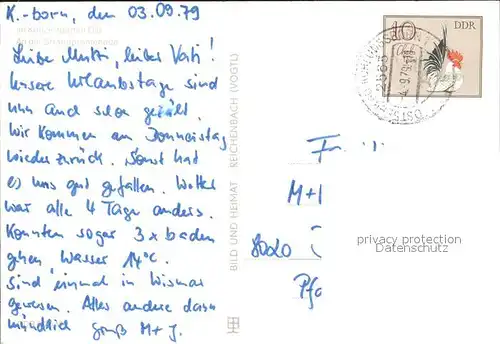 K.-born, den 03.09.79
Im Ostseebad
Liebe Mutti, lieber Vati!
Unsere Urlaubstage sind
nun auch schon gezählt.
Wir kommen am Donnerstag
wieder zurück. Sonst hat
es uns gut gefallen. Wetter
war alle 4 Tage anders.
Konnten sogar 3x baden
gehen, Wasser 14°C.
Sind einmal in Wismar
gewesen. Alles andere dann
mündlich Gruß M+J.
BILD UND HEIMAT REICHENBACH (VOGTL)
10
DDR
2565
-4.9.79
Fr.
M+I
8020
Pfo
privacy protection
Datenschutz